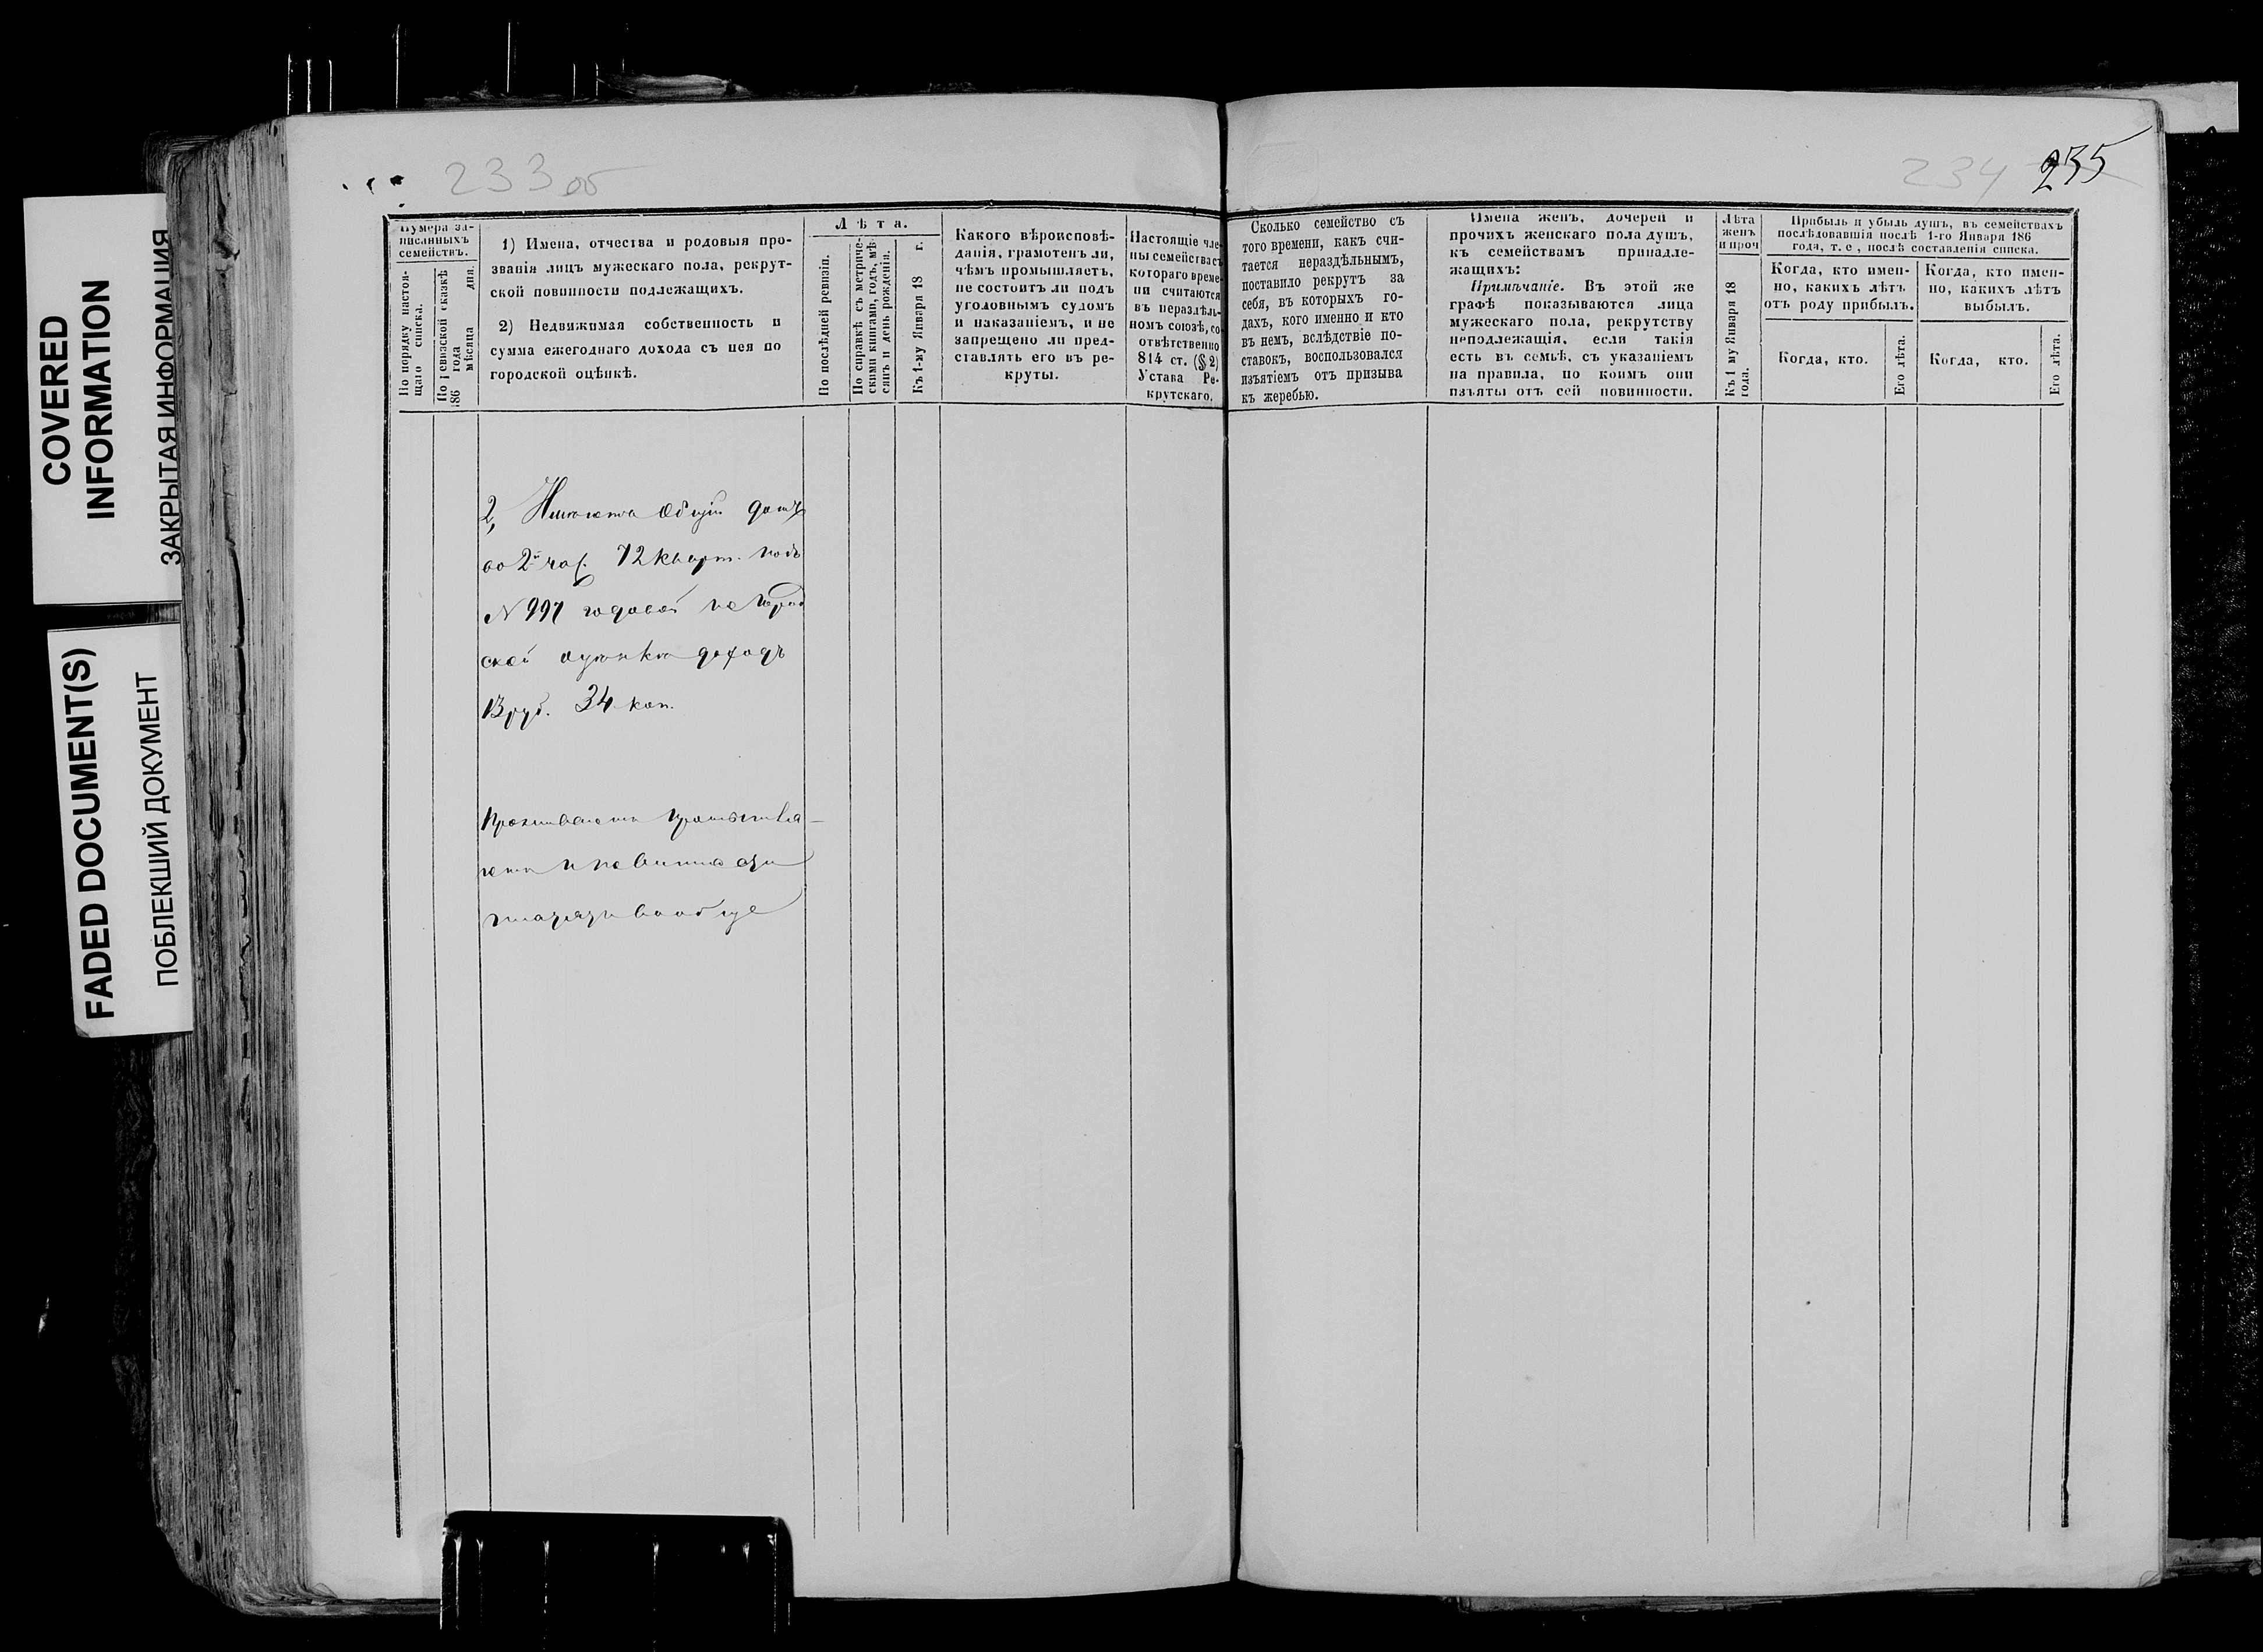 COVERED
INFORMATION
ЗАКРЫТАЯ ИНФОРМАЦИЯ
FADED DOCUMENT(S)
ПОБЛЕКШИЙ ДОКУМЕНТ
233 об
Нумера за-
писанныхъ
семействъ.
По порядку настоя-
щаго списка.
По ревизской сказкѣ
186 года
мѣсяца дня.
1) Имена, отчества и родовыя про-
званія лицъ мужескаго пола, рекрут-
ской повинности подлежащихъ.
2) Недвижимая собственность и
сумма ежегоднаго дохода съ нея по
городской оцѣнкѣ.
Лѣта.
По послѣдней ревизіи.
По справкѣ съ метриче-
скими книгами, годъ, мѣ-
сяцъ и день рожденія.
Къ 1-му Января 18 г.
Какого вѣроисповѣ-
данія, грамотенъ ли,
чѣмъ промышляетъ,
не состоитъ ли подъ
уголовнымъ судомъ
и наказаніемъ, и не
запрещено ли пред-
ставлять его въ ре-
круты.
Настоящіе чле-
ны семейства съ
котораго време-
ни считаются
въ нераздѣль-
номъ союзѣ, со-
отвѣтственно
814 ст. (§ 2)
Устава Ре-
крутскаго.
2, Имѣютъ общій домъ
во 2й час. 72 кварт. подъ
N 997 годовой по город
ской оцѣнкѣ доходъ
13 руб. 34 коп.
Проживаютъ промышля-
ютъ и повинности
вообще
234 235
Сколько семейство съ
того времени, какъ счи-
тается нераздѣльнымъ,
поставило рекрутъ за
себя, въ которыхъ го-
дахъ, кого именно и кто
въ немъ, вслѣдствіе по-
ставокъ, воспользовался
изъятіемъ отъ призыва
къ жеребью.
Имена женъ, дочерей и
прочихъ женскаго пола душъ,
къ семействамъ принадле-
жащихъ:
Примѣчаніе. Въ этой же
графѣ показываются лица
мужескаго пола, рекрутству
неподлежащія, если такія
есть въ семьѣ, съ указаніемъ
на правила, по коимъ они
изъяты отъ сей повинности.
Лѣта
женъ
и проч
Къ 1 му Января 18
года.
Прибыль и убыль душъ, въ семействахъ
послѣдовавшія послѣ 1-го Января 186
года, т. е, послѣ составленія списка.
Когда, кто имен-
но, какихъ лѣтъ
отъ роду прибылъ.
Когда, кто.
Его лѣта.
Когда, кто имен-
но, какихъ лѣтъ
выбылъ.
Когда, кто.
Его лѣта.